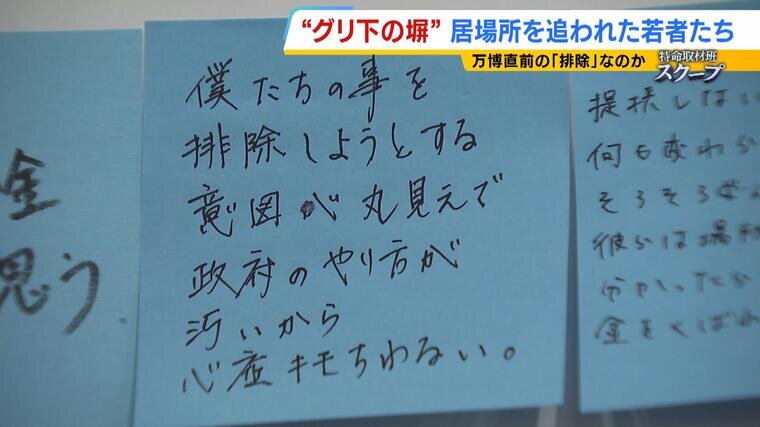 “グリ下の塀” 居場所を追われた若者たち
万博直前の「排除」なのか
特命取材班
スクープ
僕たちの事を
排除しようとする
意図が丸見えで
政府のやり方が
汚いから
心底キモちわるい。
思う.
何も変わ
そろそろ
彼らは場
金をくばれ